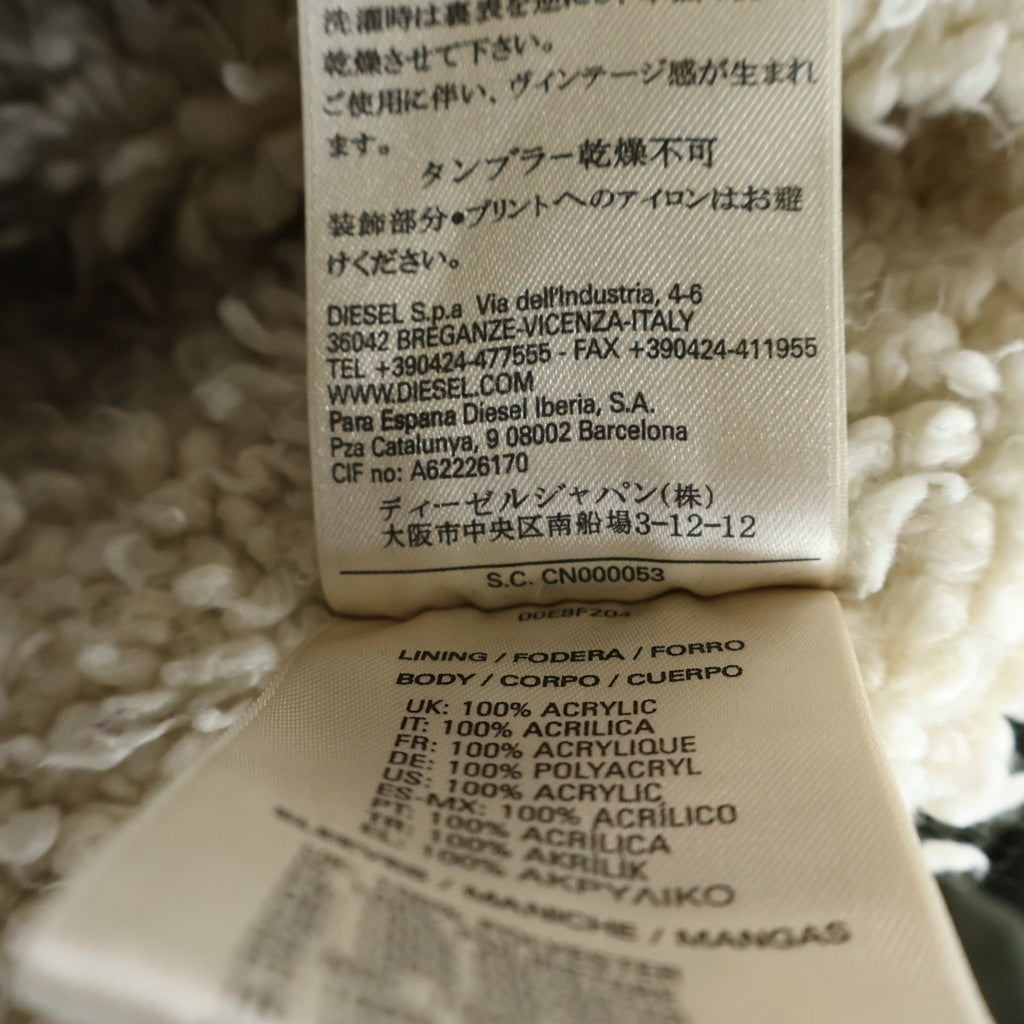 洗濯時は裏表を逆にし、
乾燥させて下さい。
ご使用に伴い、ヴィンテージ感が生まれ
ます。
タンブラー乾燥不可
装飾部分●プリントへのアイロンはお避
けください。
DIESEL S.p.a Via dell'Industria, 4-6
36042 BREGANZE-VICENZA-ITALY
TEL +390424-477555 - FAX +390424-411955
WWW.DIESEL.COM
Para Espana Diesel Iberia, S.A.
Pza Catalunya, 9 08002 Barcelona
CIF no: A62226170
ディーゼルジャパン(株)
大阪市中央区南船場3-12-12
S.C. CN000053
00EBF204
LINING / FODERA / FORRO
BODY / CORPO / CUERPO
UK: 100% ACRYLIC
IT: 100% ACRILICA
FR: 100% ACRYLIQUE
DE: 100% POLYACRYL
US: 100% ACRYLIC
ES-MX: 100% ACRÍLICO
PT: 100% ACRÍLICA
TR: 100% AKRİLİK
EL: 100% ΑΚΡΥΛΙΚΟ
/ MANICHE / MANGAS